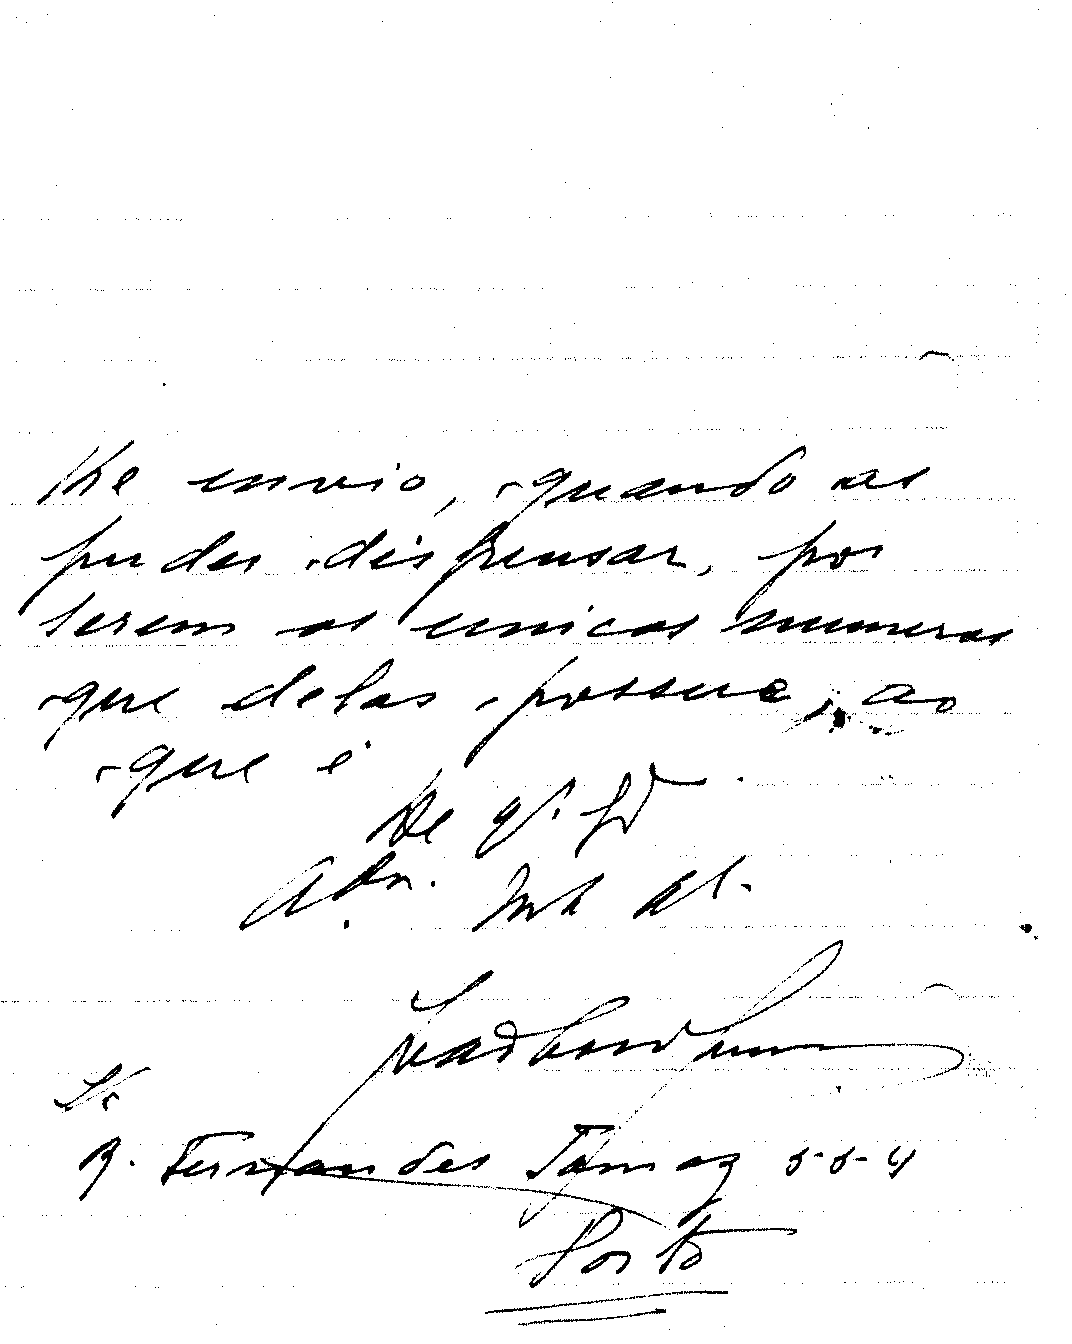 lhe envio, quando as
puder dispensar, por
serem os unicos numeros
que delas possue, ao
que é
De V.
Adm.
Sr
R. Fernandes Tomaz 5-5-4
Porto